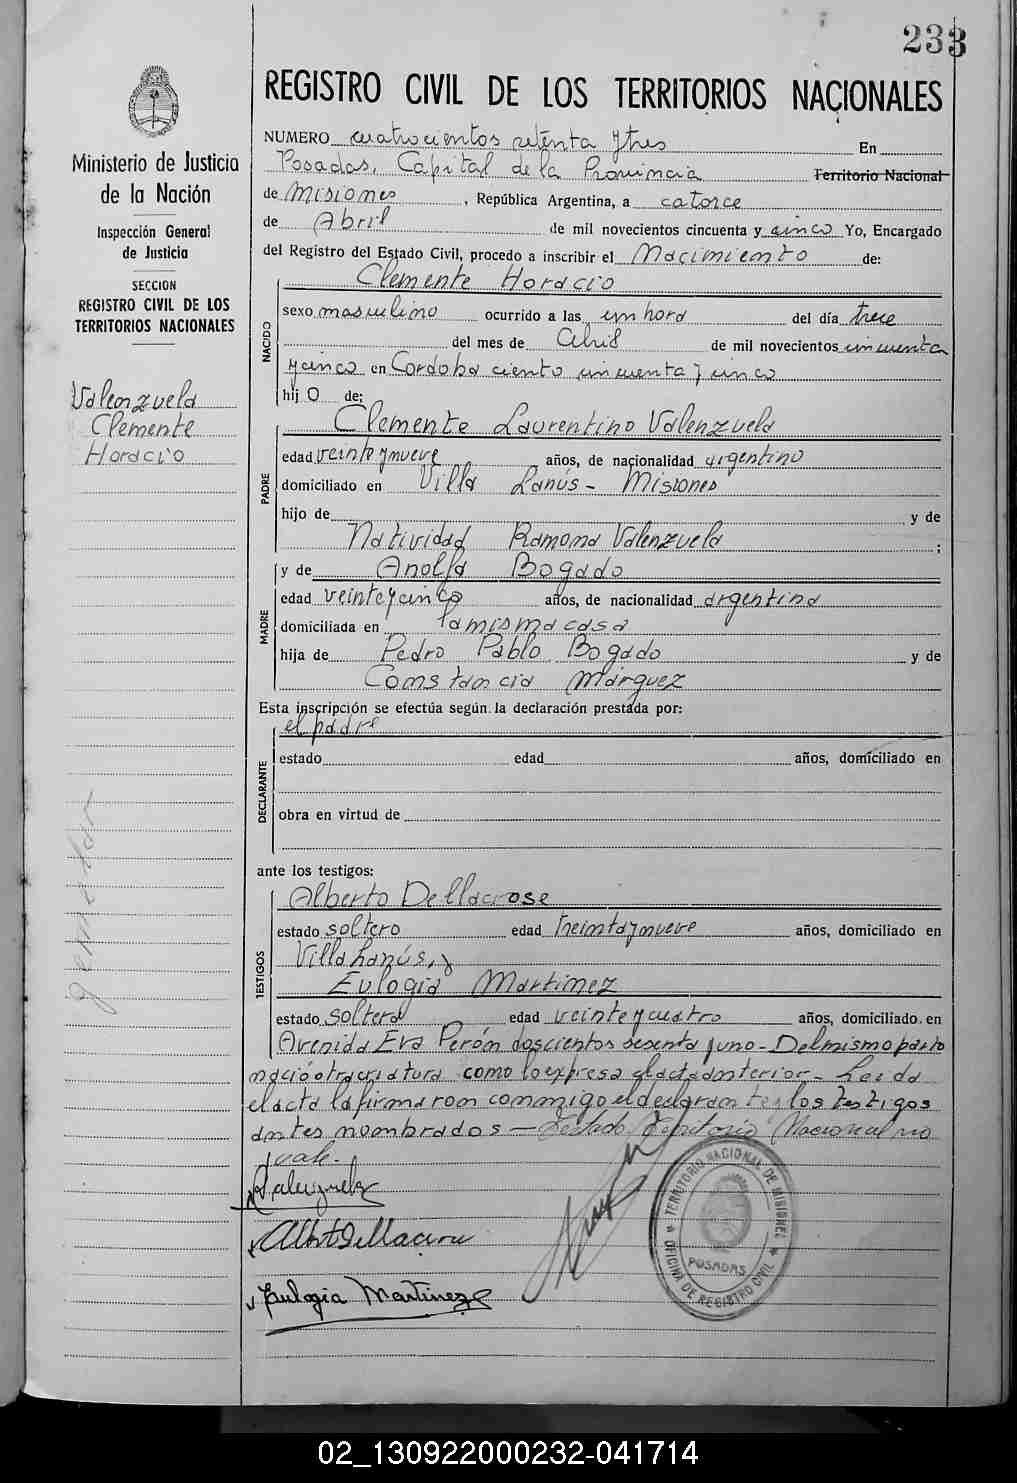 233
REGISTRO CIVIL DE LOS TERRITORIOS NACIONALES
Ministerio de Justicia
de la Nación
Inspección General
de Justicia
SECCION
REGISTRO CIVIL DE LOS
TERRITORIOS NACIONALES
Valenzuela
Clemente
Horacio
gemelar
NUMERO cuatrocientos setenta y tres En
Posadas, Capital de la Provincia Territorio Nacional
de Misiones, República Argentina, a catorce
de Abril de mil novecientos cincuenta y cinco Yo, Encargado
del Registro del Estado Civil, procedo a inscribir el Nacimiento de:
Clemente Horacio
NACIDO
sexo masculino ocurrido a las un hora del día trece
del mes de Abril de mil novecientos cincuenta
y cinco en Cordoba ciento cincuenta y cinco
hij O de:
Clemente Laurentino Valenzuela
PADRE
edad veinte y nueve años, de nacionalidad argentino
domiciliado en Villa Lanús - Misiones
hijo de y de
Natividad Ramona Valenzuela ;
y de Anolfa Bogado
MADRE
edad veinte y cinco años, de nacionalidad argentina
domiciliada en la misma casa
hija de Pedro Pablo Bogado y de
Constancia Márquez
Esta inscripción se efectúa según la declaración prestada por:
el padre
DECLARANTE
estado edad años, domiciliado en
obra en virtud de
ante los testigos:
Alberto Dellacrose
TESTIGOS
estado soltero edad treinta y nueve años, domiciliado en
Villa Lanús, y
Eulogia Martinez
estado soltera edad veinte y cuatro años, domiciliado en
Avenida Eva Perón doscientos sesenta y uno - Del mismo parto
nació otra criatura como lo expresa el acta anterior - Leida
el acta la firmaron conmigo el declarante y los testigos
antes nombrados - Testado Territorio Nacional no
vale.
Valenzuela
Eulogia Martinez
TERRITORIO NACIONAL DE MISIONES
POSADAS
OFICINA DE REGISTRO CIVIL
02_130922000232-041714